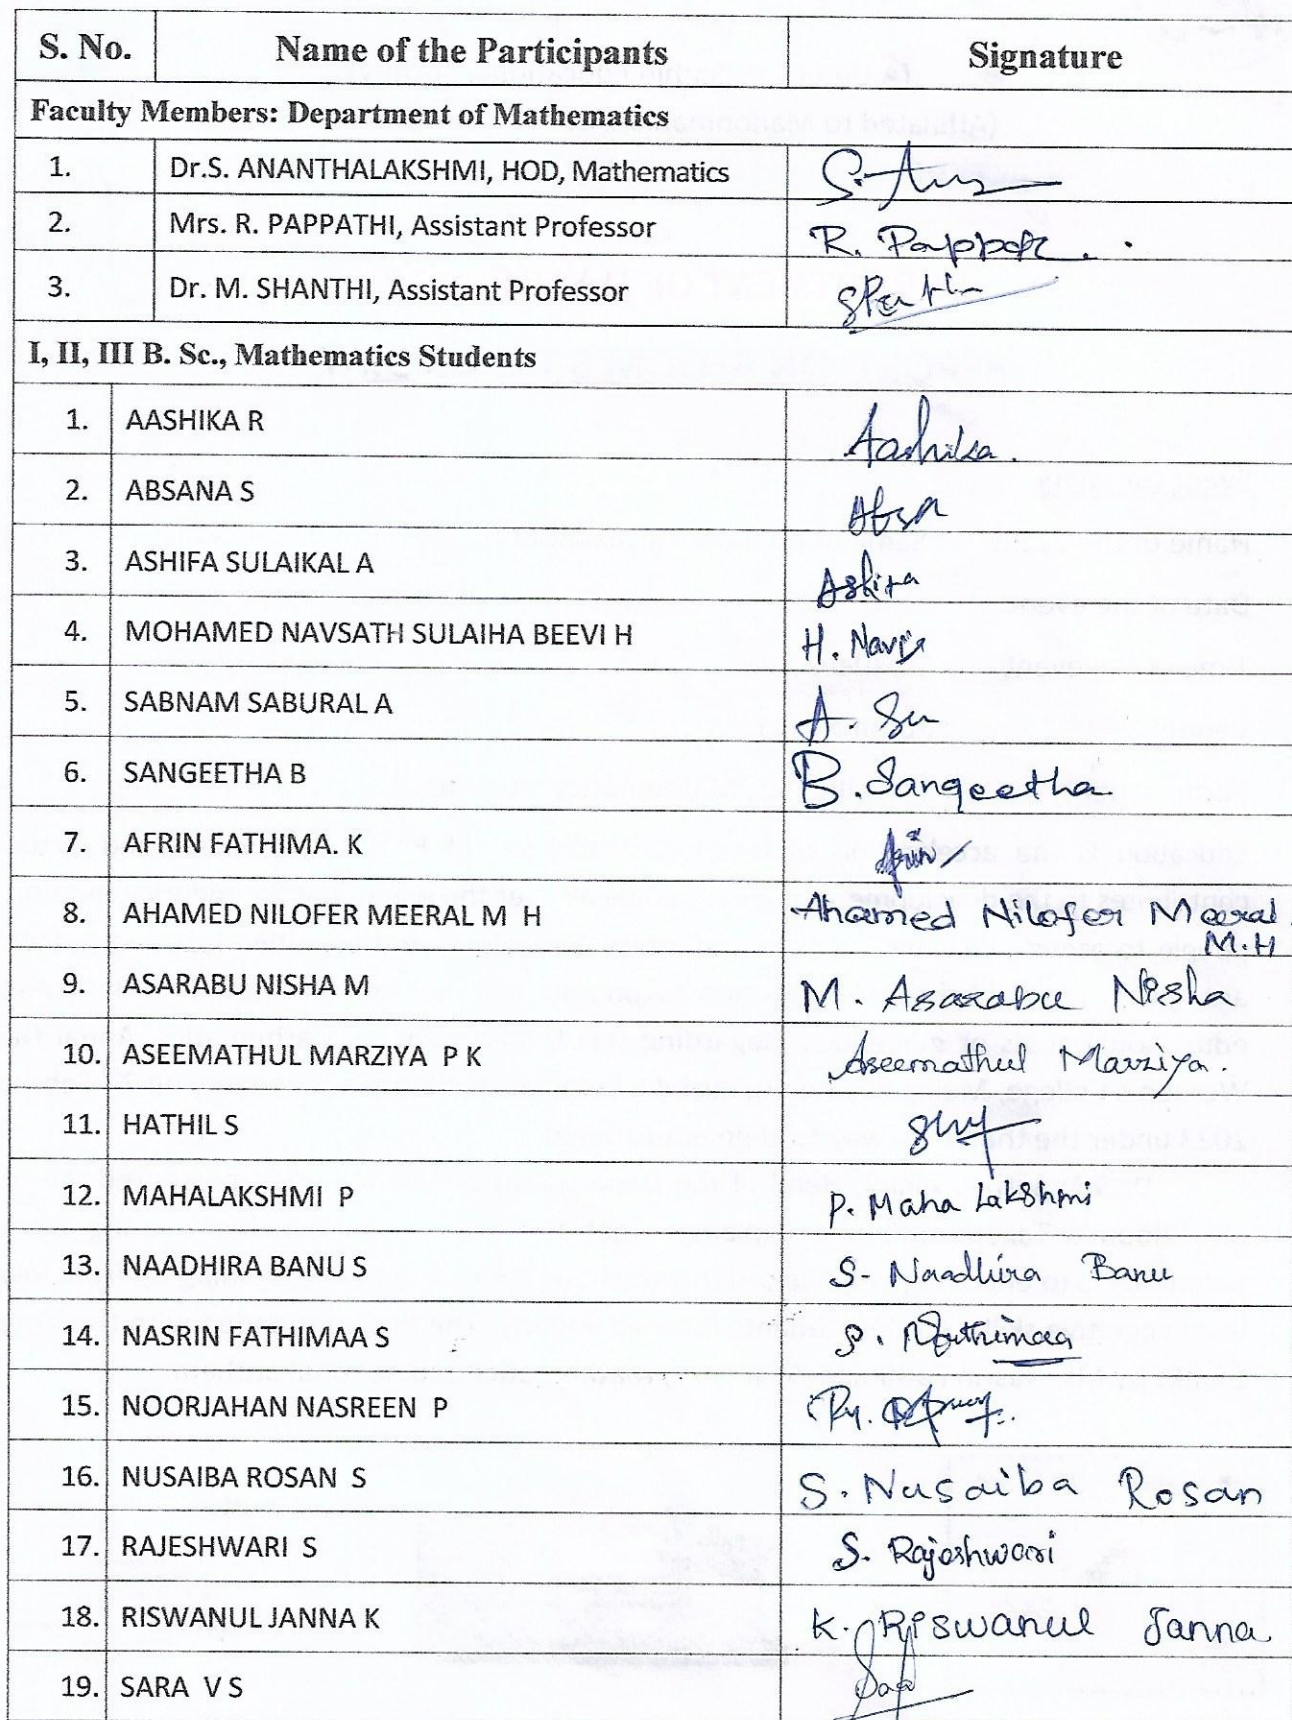 S. No. Name of the Participants Signature
Faculty Members: Department of Mathematics
1. Dr.S. ANANTHALAKSHMI, HOD, Mathematics
2. Mrs. R. PAPPATHI, Assistant Professor R.
3. Dr. M. SHANTHI, Assistant Professor
I, II, III B. Sc., Mathematics Students
1. AASHIKA R Aashika.
2. ABSANA S
3. ASHIFA SULAIKAL A
4. MOHAMED NAVSATH SULAIHA BEEVI H H.
5. SABNAM SABURAL A A.
6. SANGEETHA B B. Sangeetha
7. AFRIN FATHIMA. K
8. AHAMED NILOFER MEERAL M H Ahamed Nilofer Meeral
M.H
9. ASARABU NISHA M M. Asarabu Nisha
10. ASEEMATHUL MARZIYA P K Aseemathul Marziya.
11. HATHIL S
12. MAHALAKSHMI P P. Maha Lakshmi
13. NAADHIRA BANU S S. Naadhira Banu
14. NASRIN FATHIMAA S
15. NOORJAHAN NASREEN P
16. NUSAIBA ROSAN S S. Nusaiba Rosan
17. RAJESHWARI S S. Rajeshwari
18. RISWANUL JANNA K K. Riswanul Janna
19. SARA V S